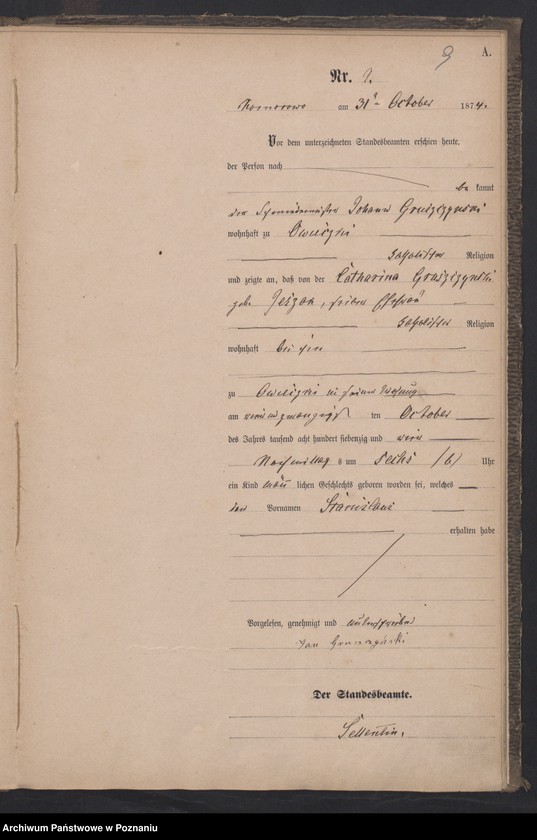 9
A.
Nr. 9.
am 31ten October 1874.
Vor dem unterzeichneten Standesbeamten erschien heute,
der Person nach
be kannt
der Johann Gruszczynski
wohnhaft zu Owieczki
katholischer Religion
und zeigte an, daß von der Catharina Gruszczynski
geb. , seiner Ehefrau
katholischer Religion
wohnhaft bei ihm
zu Owieczki in seiner Wohnung
am neun und zwanzigsten October
des Jahres tausend acht hundert siebenzig und vier
Nachmittags um sechs (6) Uhr
ein Kind männ lichen Geschlechts geboren worden sei, welches
den Vornamen Stanislaus
erhalten habe
Vorgelesen, genehmigt und unterschrieben
Jan
Der Standesbeamte.
Sellentin.
Archiwum Państwowe w Poznaniu